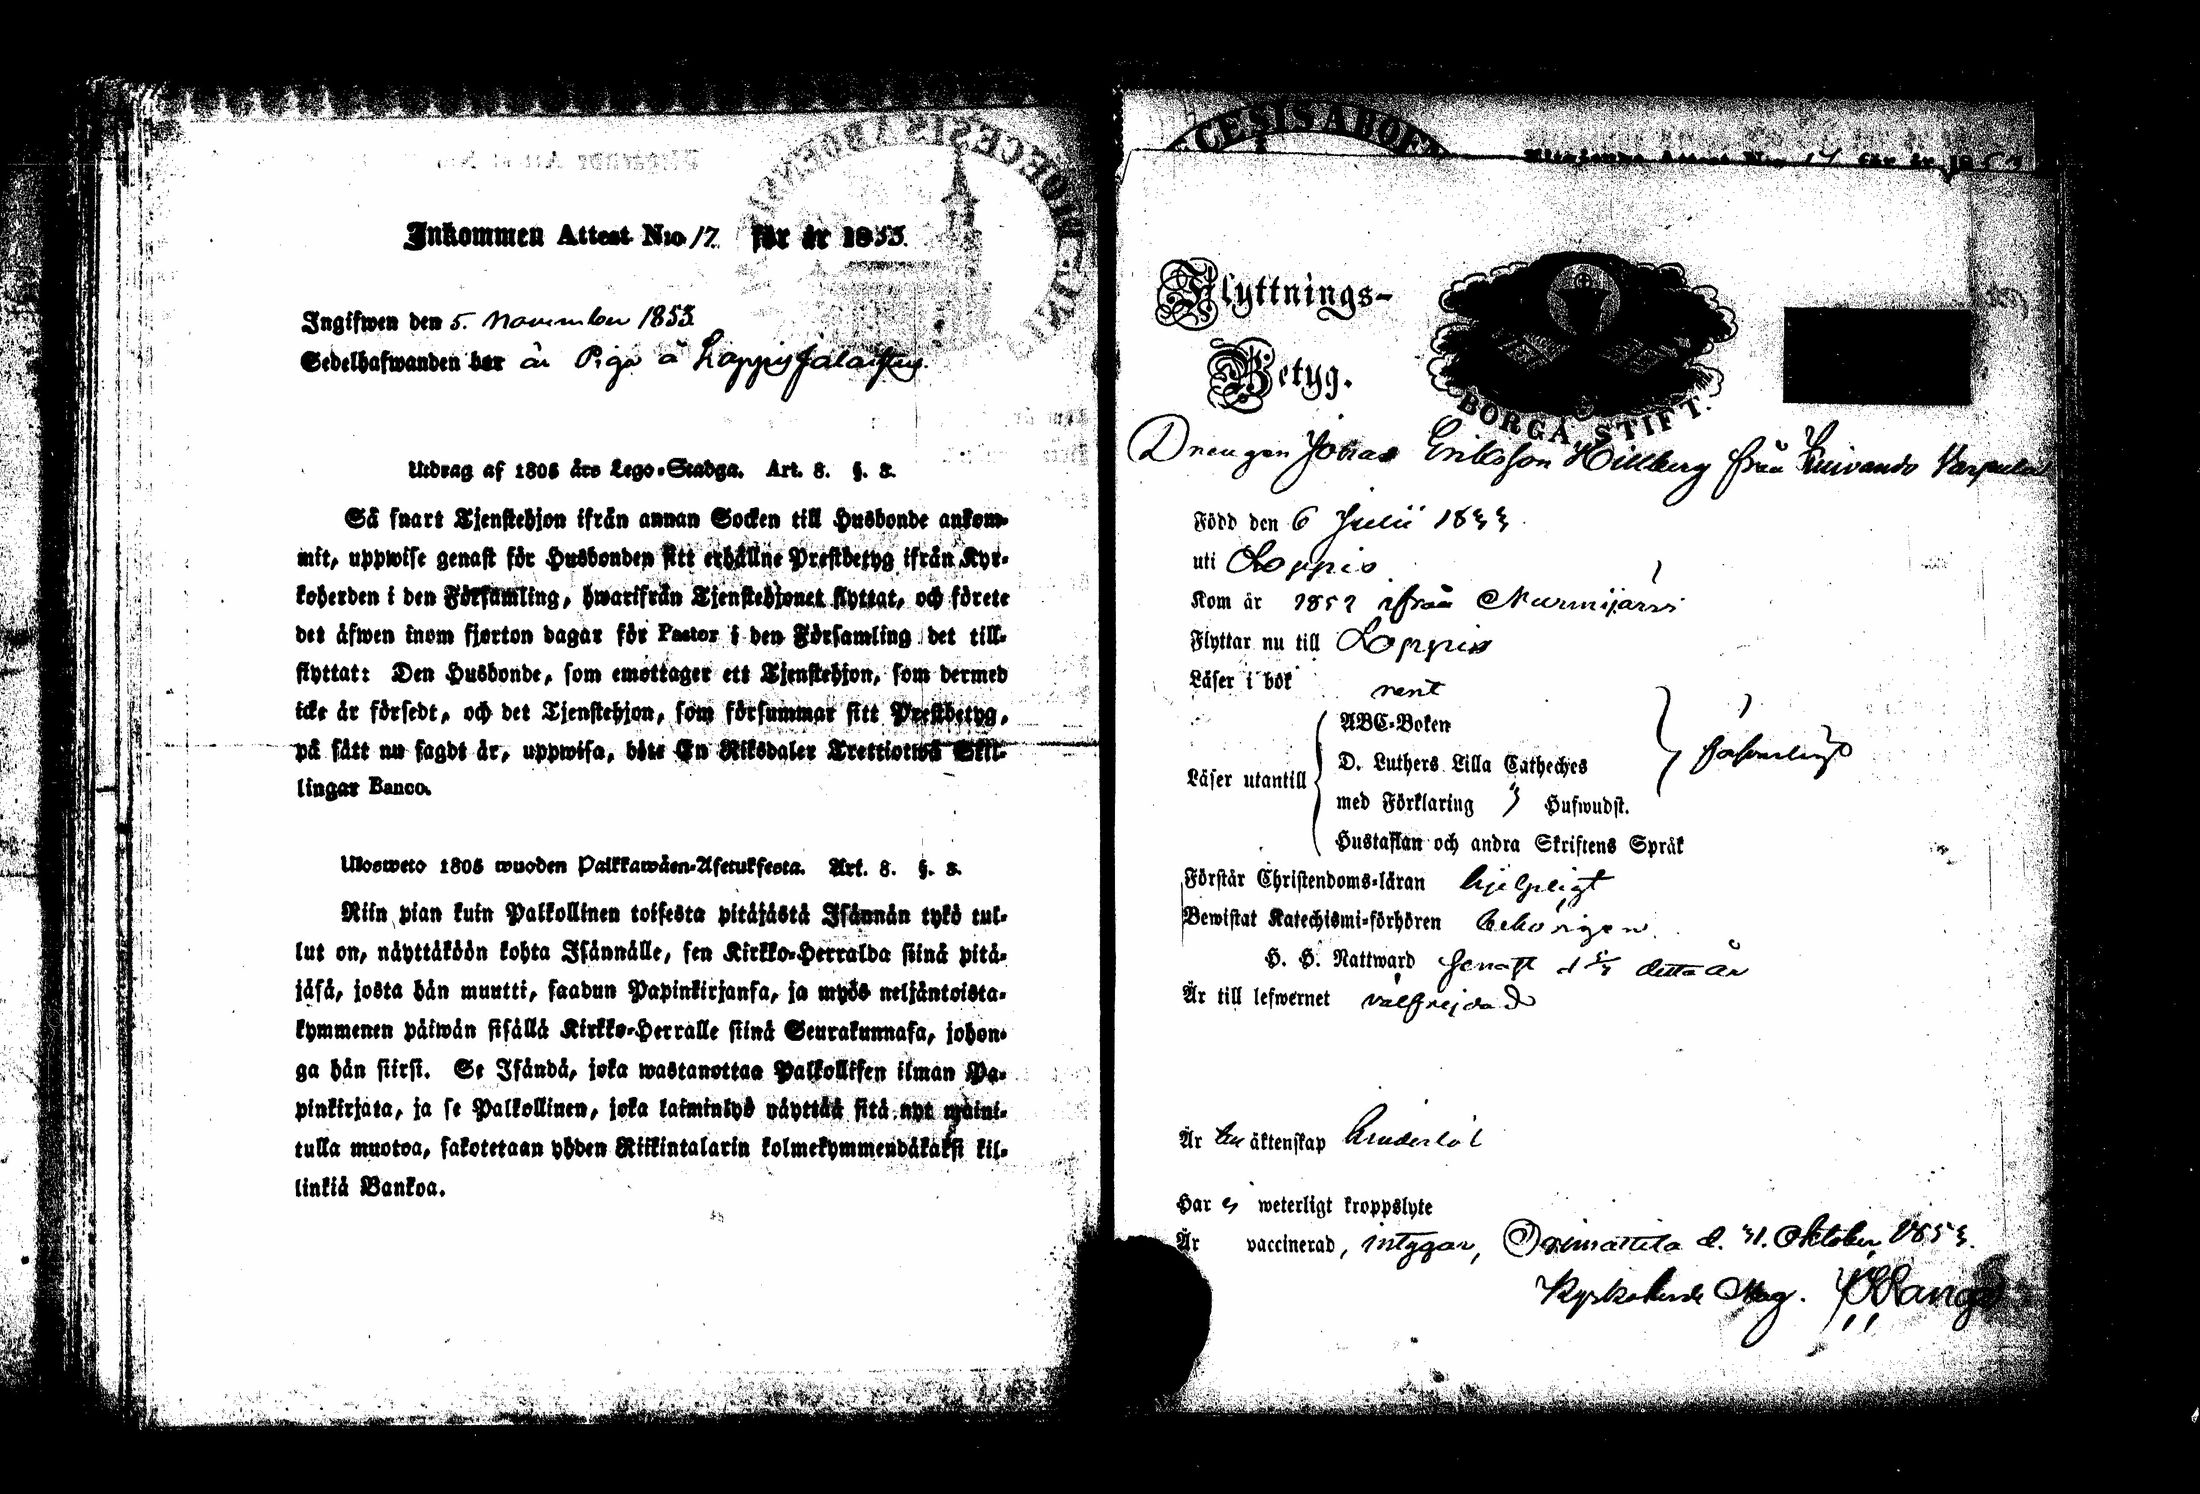 Inkommen Attest No 17 för år 1853.
Ingifwen den 5. November 1853
Sedelhafwanden har är Piga å
Utdrag af 1805 års Lego-Stadga. Art. 8. §. 3.
Så snart Tjenstehjon ifrån annan Socken till Husbonde ankom-
mit, uppwise genast för Husbonden sitt erhållne Prestbetyg ifrån Kyr-
koherden i den Församling, hwarifrån Tjenstehjonet flyttat, och förete
det äfwen inom fjorton dagar för Pastor i den Församling det till-
flyttat: Den Husbonde, som emottager ett Tjenstehjon, som dermed
icke är försedt, och det Tjenstehjon, som försummar sitt Prestbetyg,
på sätt nu sagdt är, uppwisa, böte En Riksdaler Trettiotwå Skil-
lingar Banco.
Ulosweto 1805 wuoden Palkkawäen-Asetuksesta. Art. 8. §. 3.
Niin pian kuin Palkollinen toisesta pitäjästä Isännän tykö tul-
lut on, näyttäköön kohta Isännälle, sen Kirkko-Herralda siinä pitä-
jäsä, josta hän muutti, saadun Papinkirjansa, ja myös neljäntoista-
kymmenen päiwän sisällä Kirkko-Herralle siinä Seurakunnasa, johon-
ga hän siirsi. Se Isändä, joka wastanottaa Palkollisen ilman Pa-
pinkirjata, ja se Palkollinen, joka laiminlyö näyttää sitä nyt maini-
tulla muotoa, sakotetaan yhden Riikintalarin kolmekymmendäkaksi kil-
linkiä Bankoa.
CESIS ABOEN
Utgående Attest No 17 för år 18
Flyttnings-
Betyg.
BORGÅ STIFT.
Drengen Jonas Eriksson Hillberg från Kuivando
Född den 6 Julii 1833
uti Loppis
Kom år 1852 ifrån Nurmijärvi
Flyttar nu till Loppis
Läser i bok rent
Läser utantill
ABC-Boken
D. Luthers Lilla Catheches
med Förklaring Hufwudst.
Hustaflan och andra Skriftens Språk
Förstår Christendoms-läran hjelpligt
Bewistat Katechismi-förhören behörigen
H. H. Nattward senast d detta år
Är till lefwernet välfrejdad
Är äktenskap hinderlös
Har ej weterligt kroppslyte
Är vaccinerad, intygar, Orimattila d. 31. Oktober 1853.
Kyrkoherde Mag.